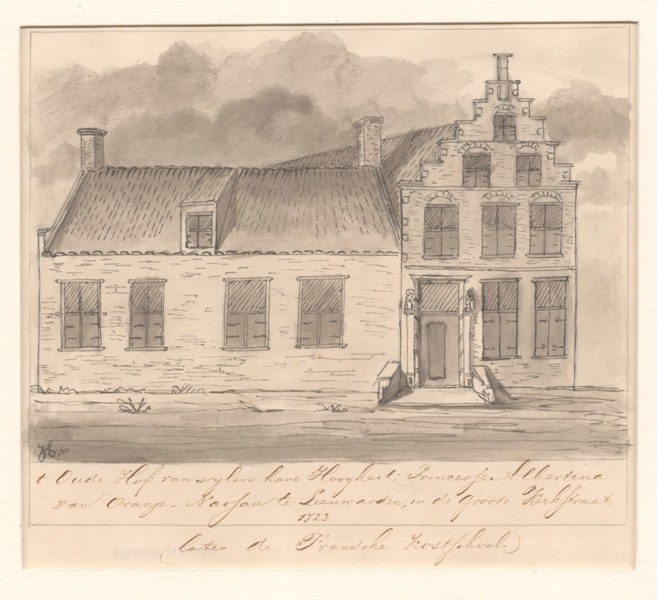 t Oude Hof van wylen hare Hoogheit; Princesse Albertina
van Oranje-Nassau te Leeuwarden, in de Groote Kerkstraat.
1723.
(later de Fransche kostschool.)